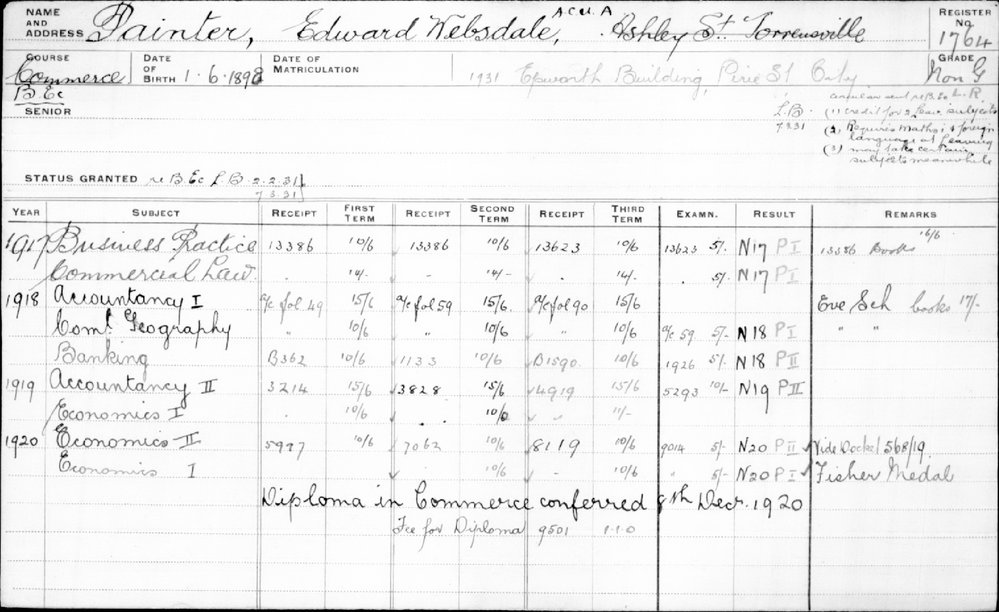 NAME AND ADDRESS Painter, Edward Websdale, A.C.U.A Ashley St Torrensville REGISTER No. 1764
COURSE Commerce DATE OF BIRTH 1.6.1898 DATE OF MATRICULATION 1931 Epworth Building, Pirie St City GRADE Non G
B.Ec
SENIOR
circular sent re B.Ec L.R.
L.B. (1) credit for 2 Leav. subjects
7 3 31 (2) Requires Maths I & foreign
language at Leaving
(3) may take certain
subjects meanwhile
STATUS GRANTED re B.Ec L B 2.2.31
7 3 31
YEAR SUBJECT RECEIPT FIRST TERM RECEIPT SECOND TERM RECEIPT THIRD TERM EXAMN. RESULT REMARKS
1917 Business Practice 13386 10/6 13386 10/6 13623 10/6 13623 5/- N17 P I 13386 Books 16/6
Commercial Law. " 14/- " 14/- " 14/- 5/- N17 P I
1918 Accountancy I a/c fol 49 15/6 a/c fol 59 15/6 a/c fol 90 15/6 Eve Sch books 17/-
Coml. Geography " 10/6 " 10/6 " 10/6 a/c 59 5/- N18 P I " "
Banking B362 10/6 1133 10/6 D1590 10/6 1926 5/- N18 P II
1919 Accountancy II 3214 15/6 3828 15/6 4919 15/6 5293 10/- N19 P II
Economics I . 10/6 " 10/6 " 11/-
1920 Economics II 5997 10/6 7062 10/6 8119 10/6 9014 5/- N20 P II Vide Docket 568/19.
Economics I " 10/6 " 10/6 " 5/- N20 P I Fisher Medal
Diploma in Commerce conferred 8th Decr. 1920
Fee for Diploma 9501 1-1-0